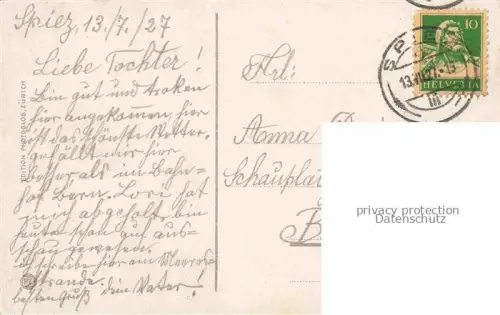 Spiez, 13./7./27
Liebe Tochter!
Bin gut und troken
hier angekommen hier
ist das schönste Wetter.
gefällt mir hier
besser als im Bahn-
hof Bern. Lori hat
mich abgeholt, bin
heute schon auf aus-
schau gewesen.
schreibe hier am Meeres-
strande.
besten Gruß dein Vater!
EDITION PHOTOGLOB, ZÜRICH
Frl:
Anna
Schauplatz
B
10
HELVETIA
SPIEZ
13.VII.27
privacy protection
Datenschutz